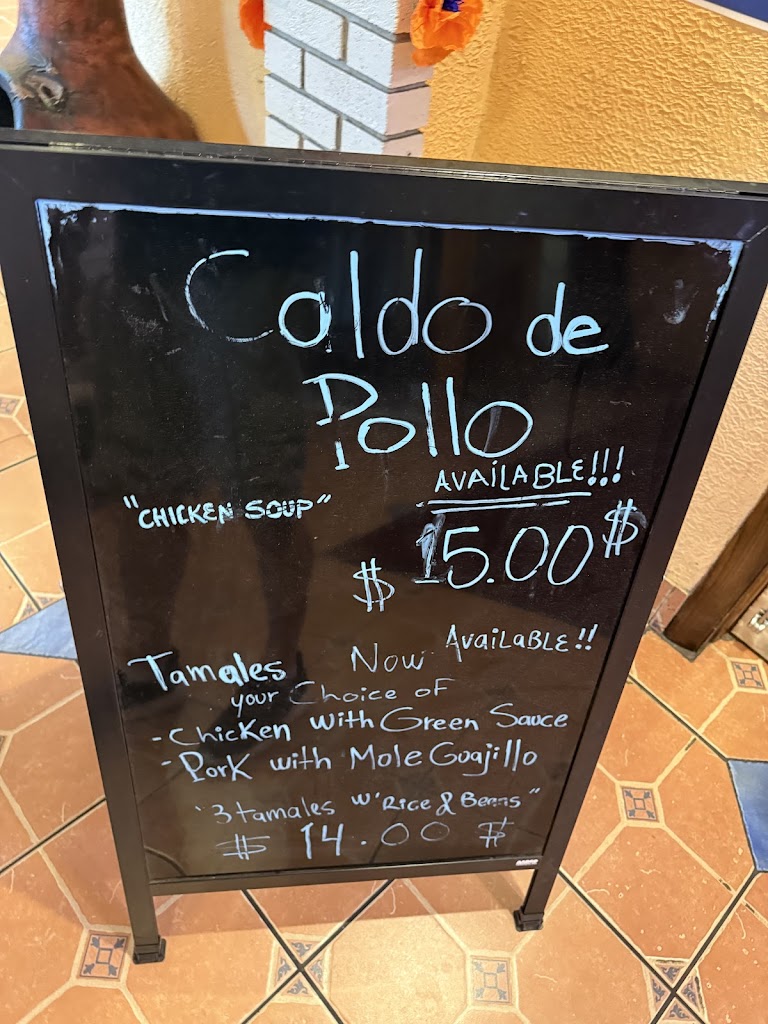 Caldo de
Pollo
AVAILABLE!!!
"CHICKEN SOUP"
$ 15.00 $
Tamales Now AvaiLaBLE!!
your Choice of
- Chicken with Green Sauce
- Pork with Mole Guajillo
"3 tamales w/ Rice & Beans"
$ 14.00 $